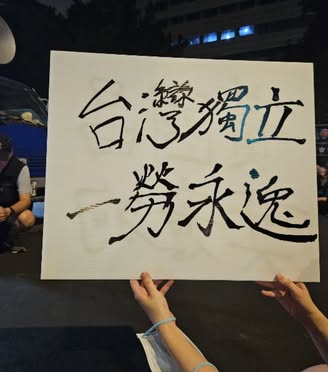 台灣獨立
一勞永逸